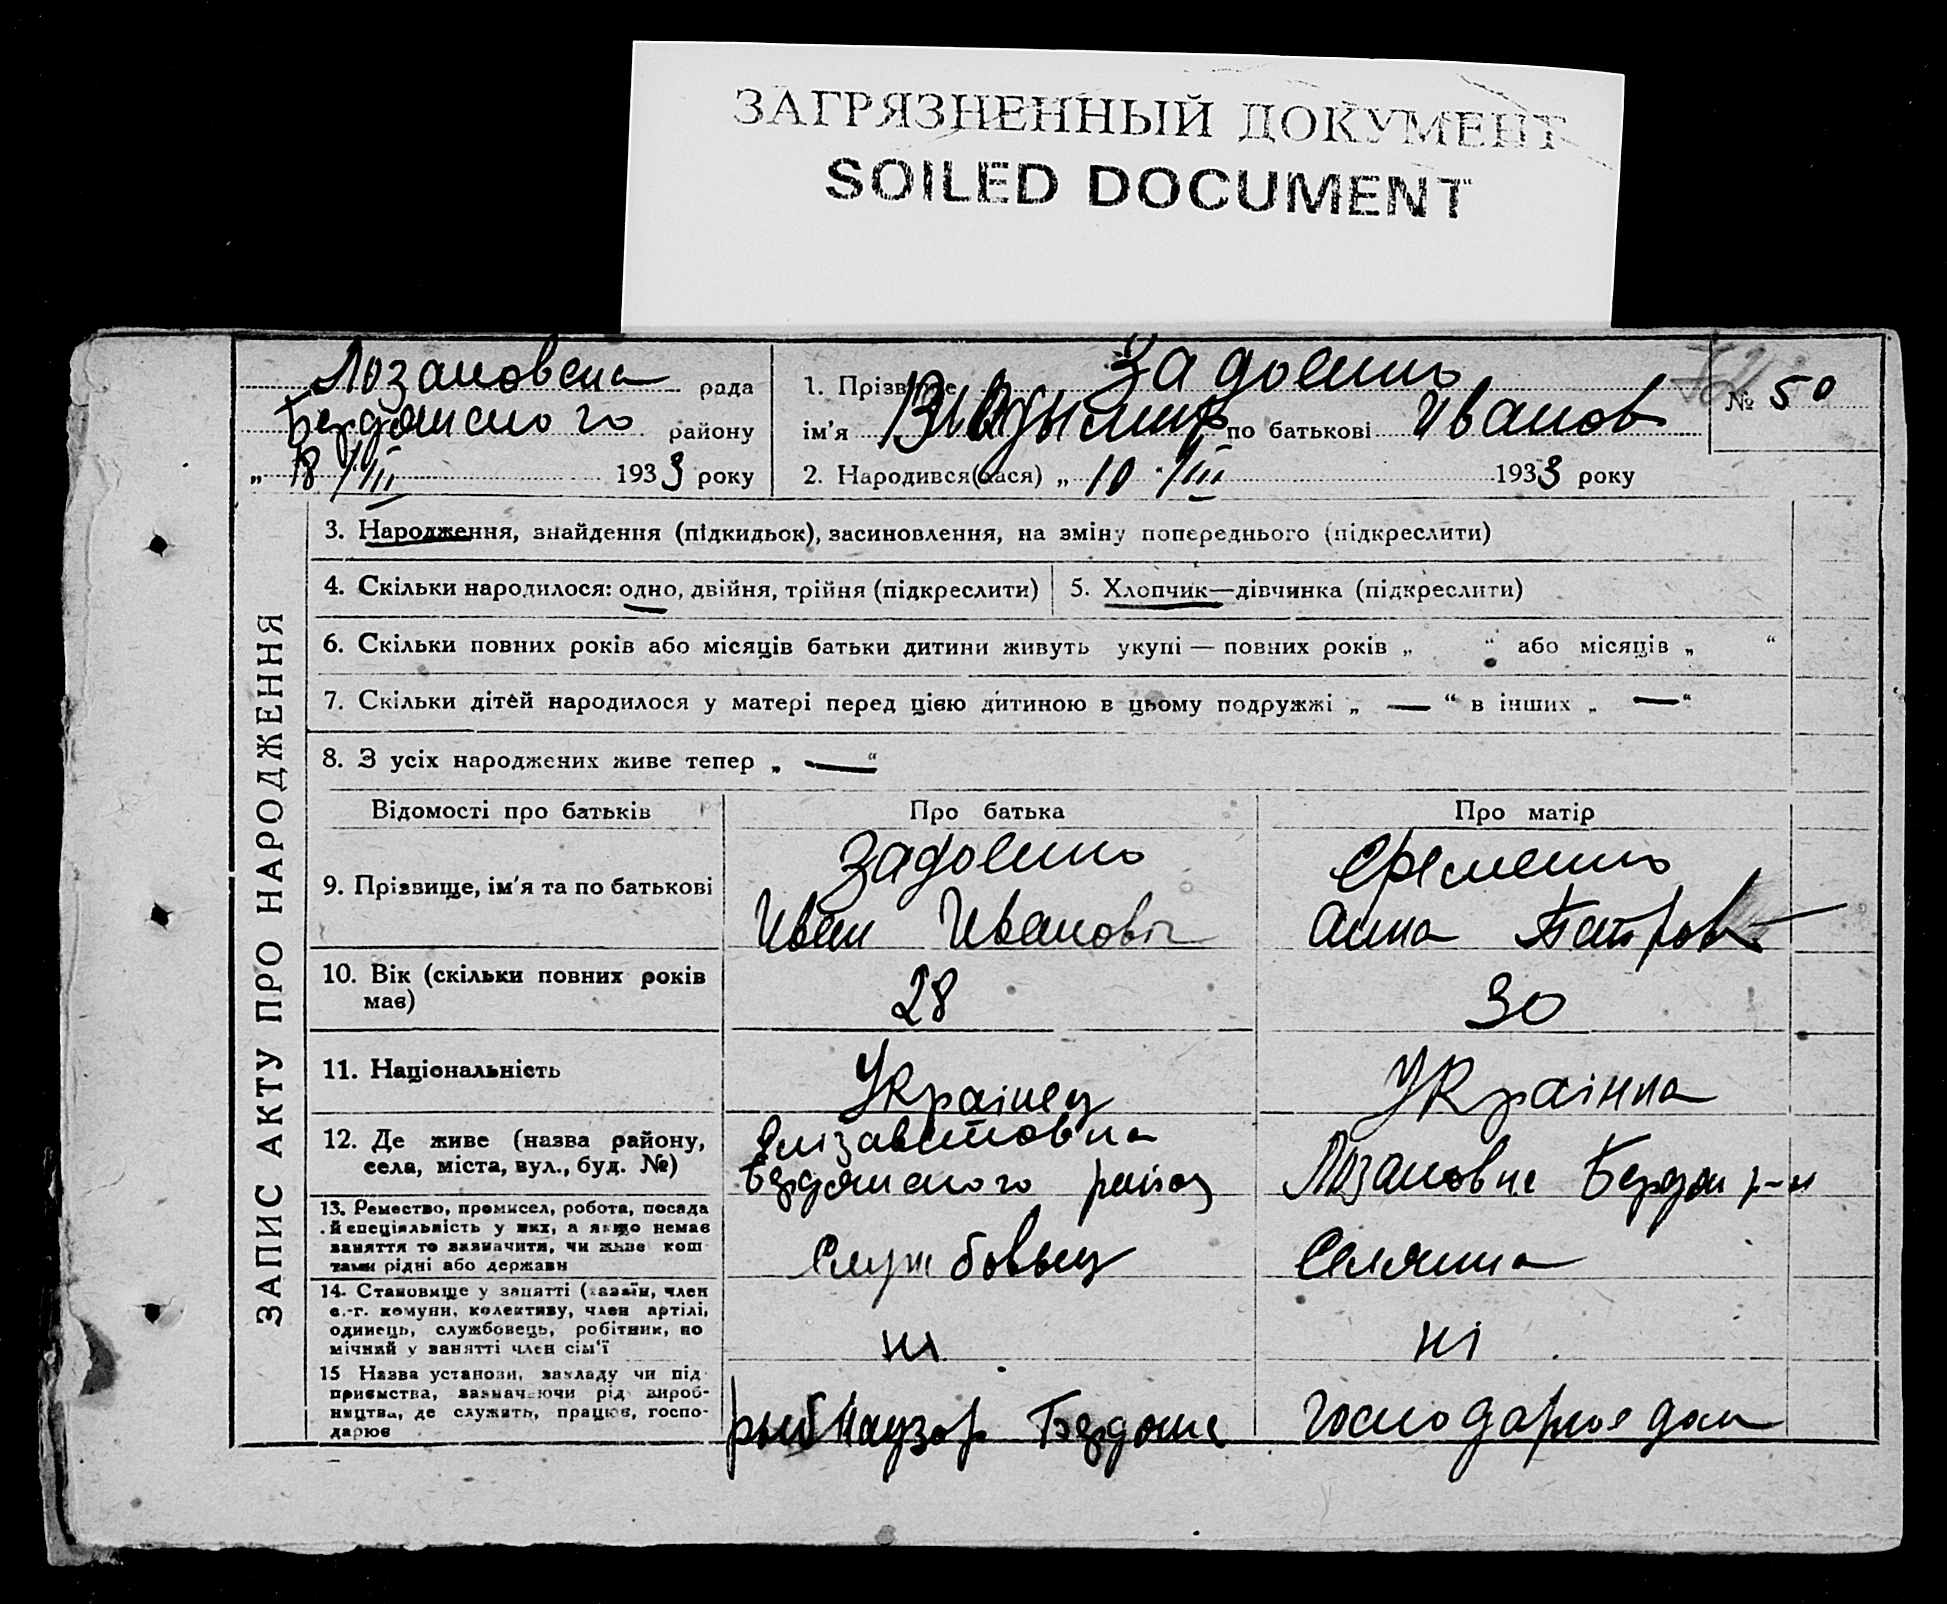 ЗАГРЯЗНЕННЫЙ ДОКУМЕНТ
SOILED DOCUMENT
Лозановська рада
Бердянського району
„ 18 /III 1933 року
1. Прізвище Задоенко
ім'я Владымир по батькові Иванов
2. Народився(лася) „ 10 “ /III 1933 року
№ 50
ЗАПИС АКТУ ПРО НАРОДЖЕННЯ
3. Народження, знайдення (підкидьок), засиновлення, на зміну попереднього (підкреслити)
4. Скільки народилося: одно, двійня, трійня (підкреслити)
5. Хлопчик—дівчинка (підкреслити)
6. Скільки повних років або місяців батьки дитини живуть укупі — повних років „ “ або місяців „ “
7. Скільки дітей народилося у матері перед цією дитиною в цьому подружжі „ — “ в інших „ — “
8. З усіх народжених живе тепер „ — “
Відомості про батьків
Про батька
Про матір
9. Прізвище, ім'я та по батькові
Задоенко
Иван Иванович
Єременко
Анна Петров
10. Вік (скільки повних років
має)
28
30
11. Національність
Українец
Українка
12. Де живе (назва району,
села, міста, вул., буд. №)
Єлізаветовка
Бердянського району
Лозановке Бердян р-н
13. Ремество, промисел, робота, посада
й спеціяльність у них, а якщо немає
заняття то зазначити, чи живе кош
тами рідні або держави
Службовыц
Селянка
14. Становище у занятті (хазяїн, член
с.-г. комуни, колективу, член артілі,
одинець, службовець, робітник, по
мічний у занятті член сім'ї
ні
ні
15 Назва установи, закладу чи під
приємства, зазначаючи рід вироб-
ництва, де служить, працює, госпо-
дарює
рыб Бердянс
господарное дом